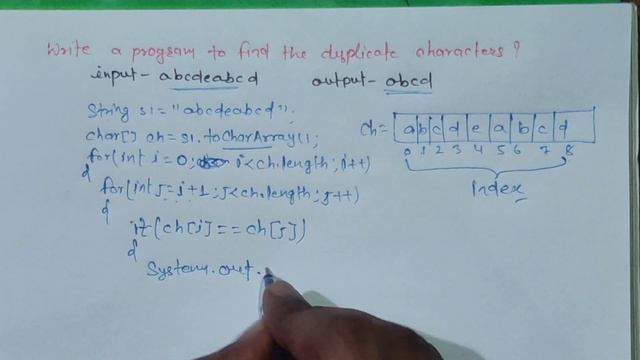 Write a program to find the duplicate characters?
input- abcdeabcd output- abcd
String s1="abcdeabcd";
char[] ch=s1.toCharArray();
for(int i=0; i<ch.length;i++)
{
for(int j=i+1;j<ch.length;j++)
{
if(ch[i]==ch[j])
{
System.out.
ch= a b c d e a b c d
0 1 2 3 4 5 6 7 8
Index